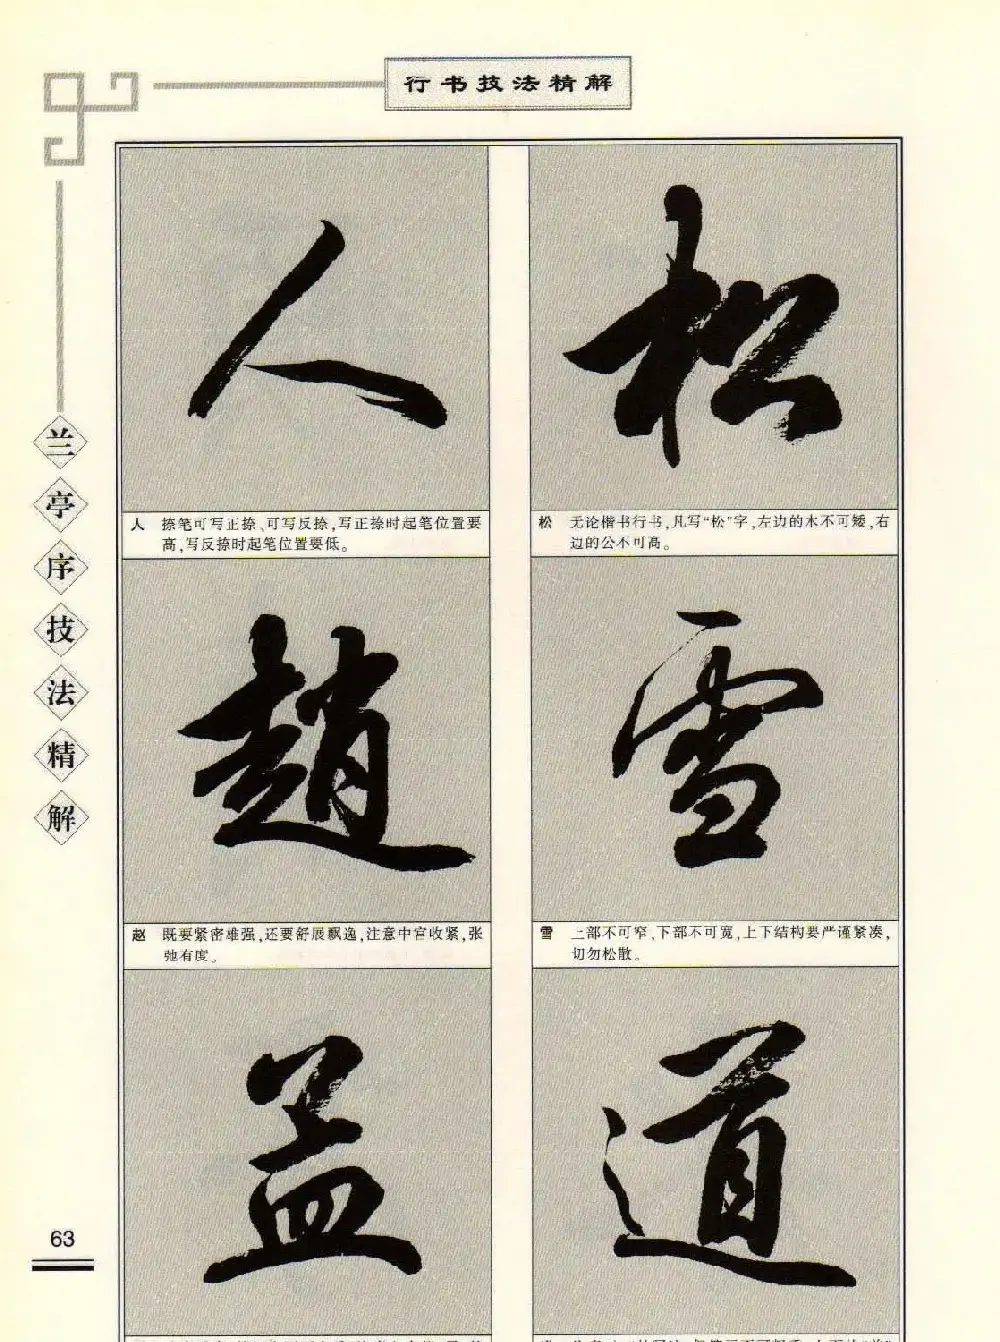 行书技法精解
兰亭序技法精解
人
人 捺笔可写正捺、可写反捺,写正捺时起笔位置要
高,写反捺时起笔位置要低。
松
松 无论楷书行书,凡写“松”字,左边的木不可矮,右
边的公不可高。
趙
赵 既要紧密雄强,还要舒展飘逸,注意中宫收紧,张
弛有度。
雪
雪 上部不可窄,下部不可宽,上下结构要严谨紧凑,
切勿松散。
盖
道
63